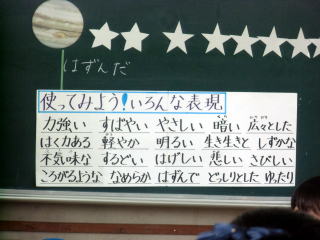 はずんだ
使ってみよう!いろんな表現
力強い すばやい やさしい 暗い 広々とした
はく力ある 軽やか 明るい 生き生きと しずかな
不気味な するどい はげしい 悲しい さびしい
ころがるような なめらか はずんで どっしりとした ゆったり